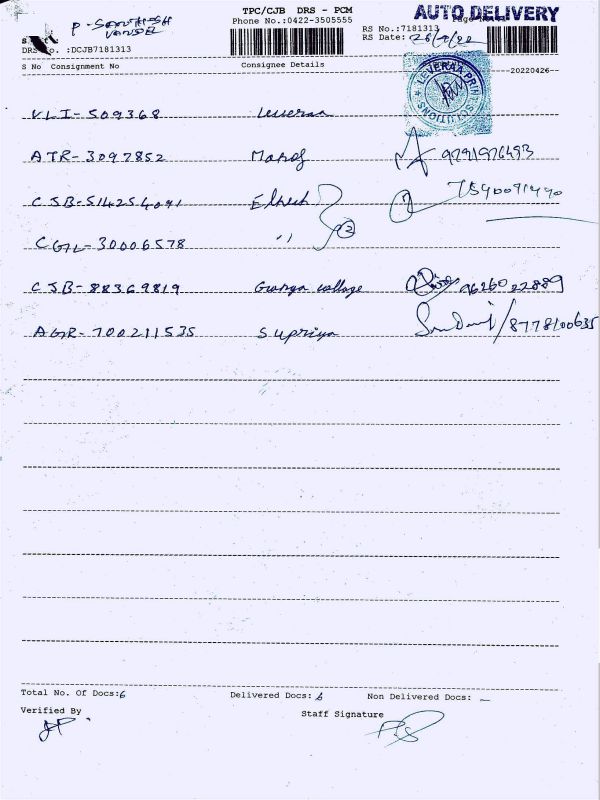 TPC/CJB DRS - PCM
AUTO DELIVERY
P- SANTHOSH
Phone No.:0422-3505555
RS No.:7181313
RS Date: 26/4/22
DRS No. :DCJB7181313
S No Consignment No Consignee Details 20220426
LEVERAA PRINT SOLUTIONS
VLI-509368 Leveraa
ATR-3097852 Manoj 9791976493
CJB-514254091 7540091440
CGL-30006578 " 2
CJB-88369819 Ganga collage 9626022889
AGR-700211535 Supriya /8778100635
Total No. Of Docs:6 Delivered Docs: 6 Non Delivered Docs: —
Verified By Staff Signature